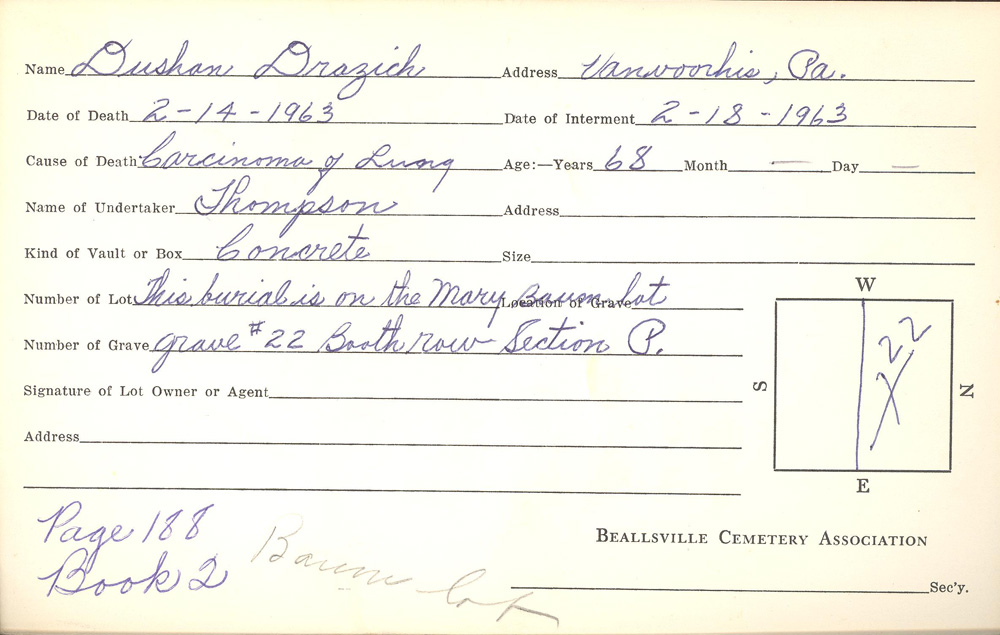 Name Dushan Drazich Address Vanvoorhis, Pa.
Date of Death 2-14-1963 Date of Interment 2-18-1963
Cause of Death Carcinoma of Lung Age:—Years 68 Month — Day —
Name of Undertaker Thompson Address
Kind of Vault or Box Concrete Size
Number of Lot This burial is on the Mary Baum lot Location of Grave
Number of Grave grave #22 Booth row Section P.
Signature of Lot Owner or Agent
Address
W
S
N
E
X 22
Page 188
Book 2
Baum lot
BEALLSVILLE CEMETERY ASSOCIATION
Sec'y.